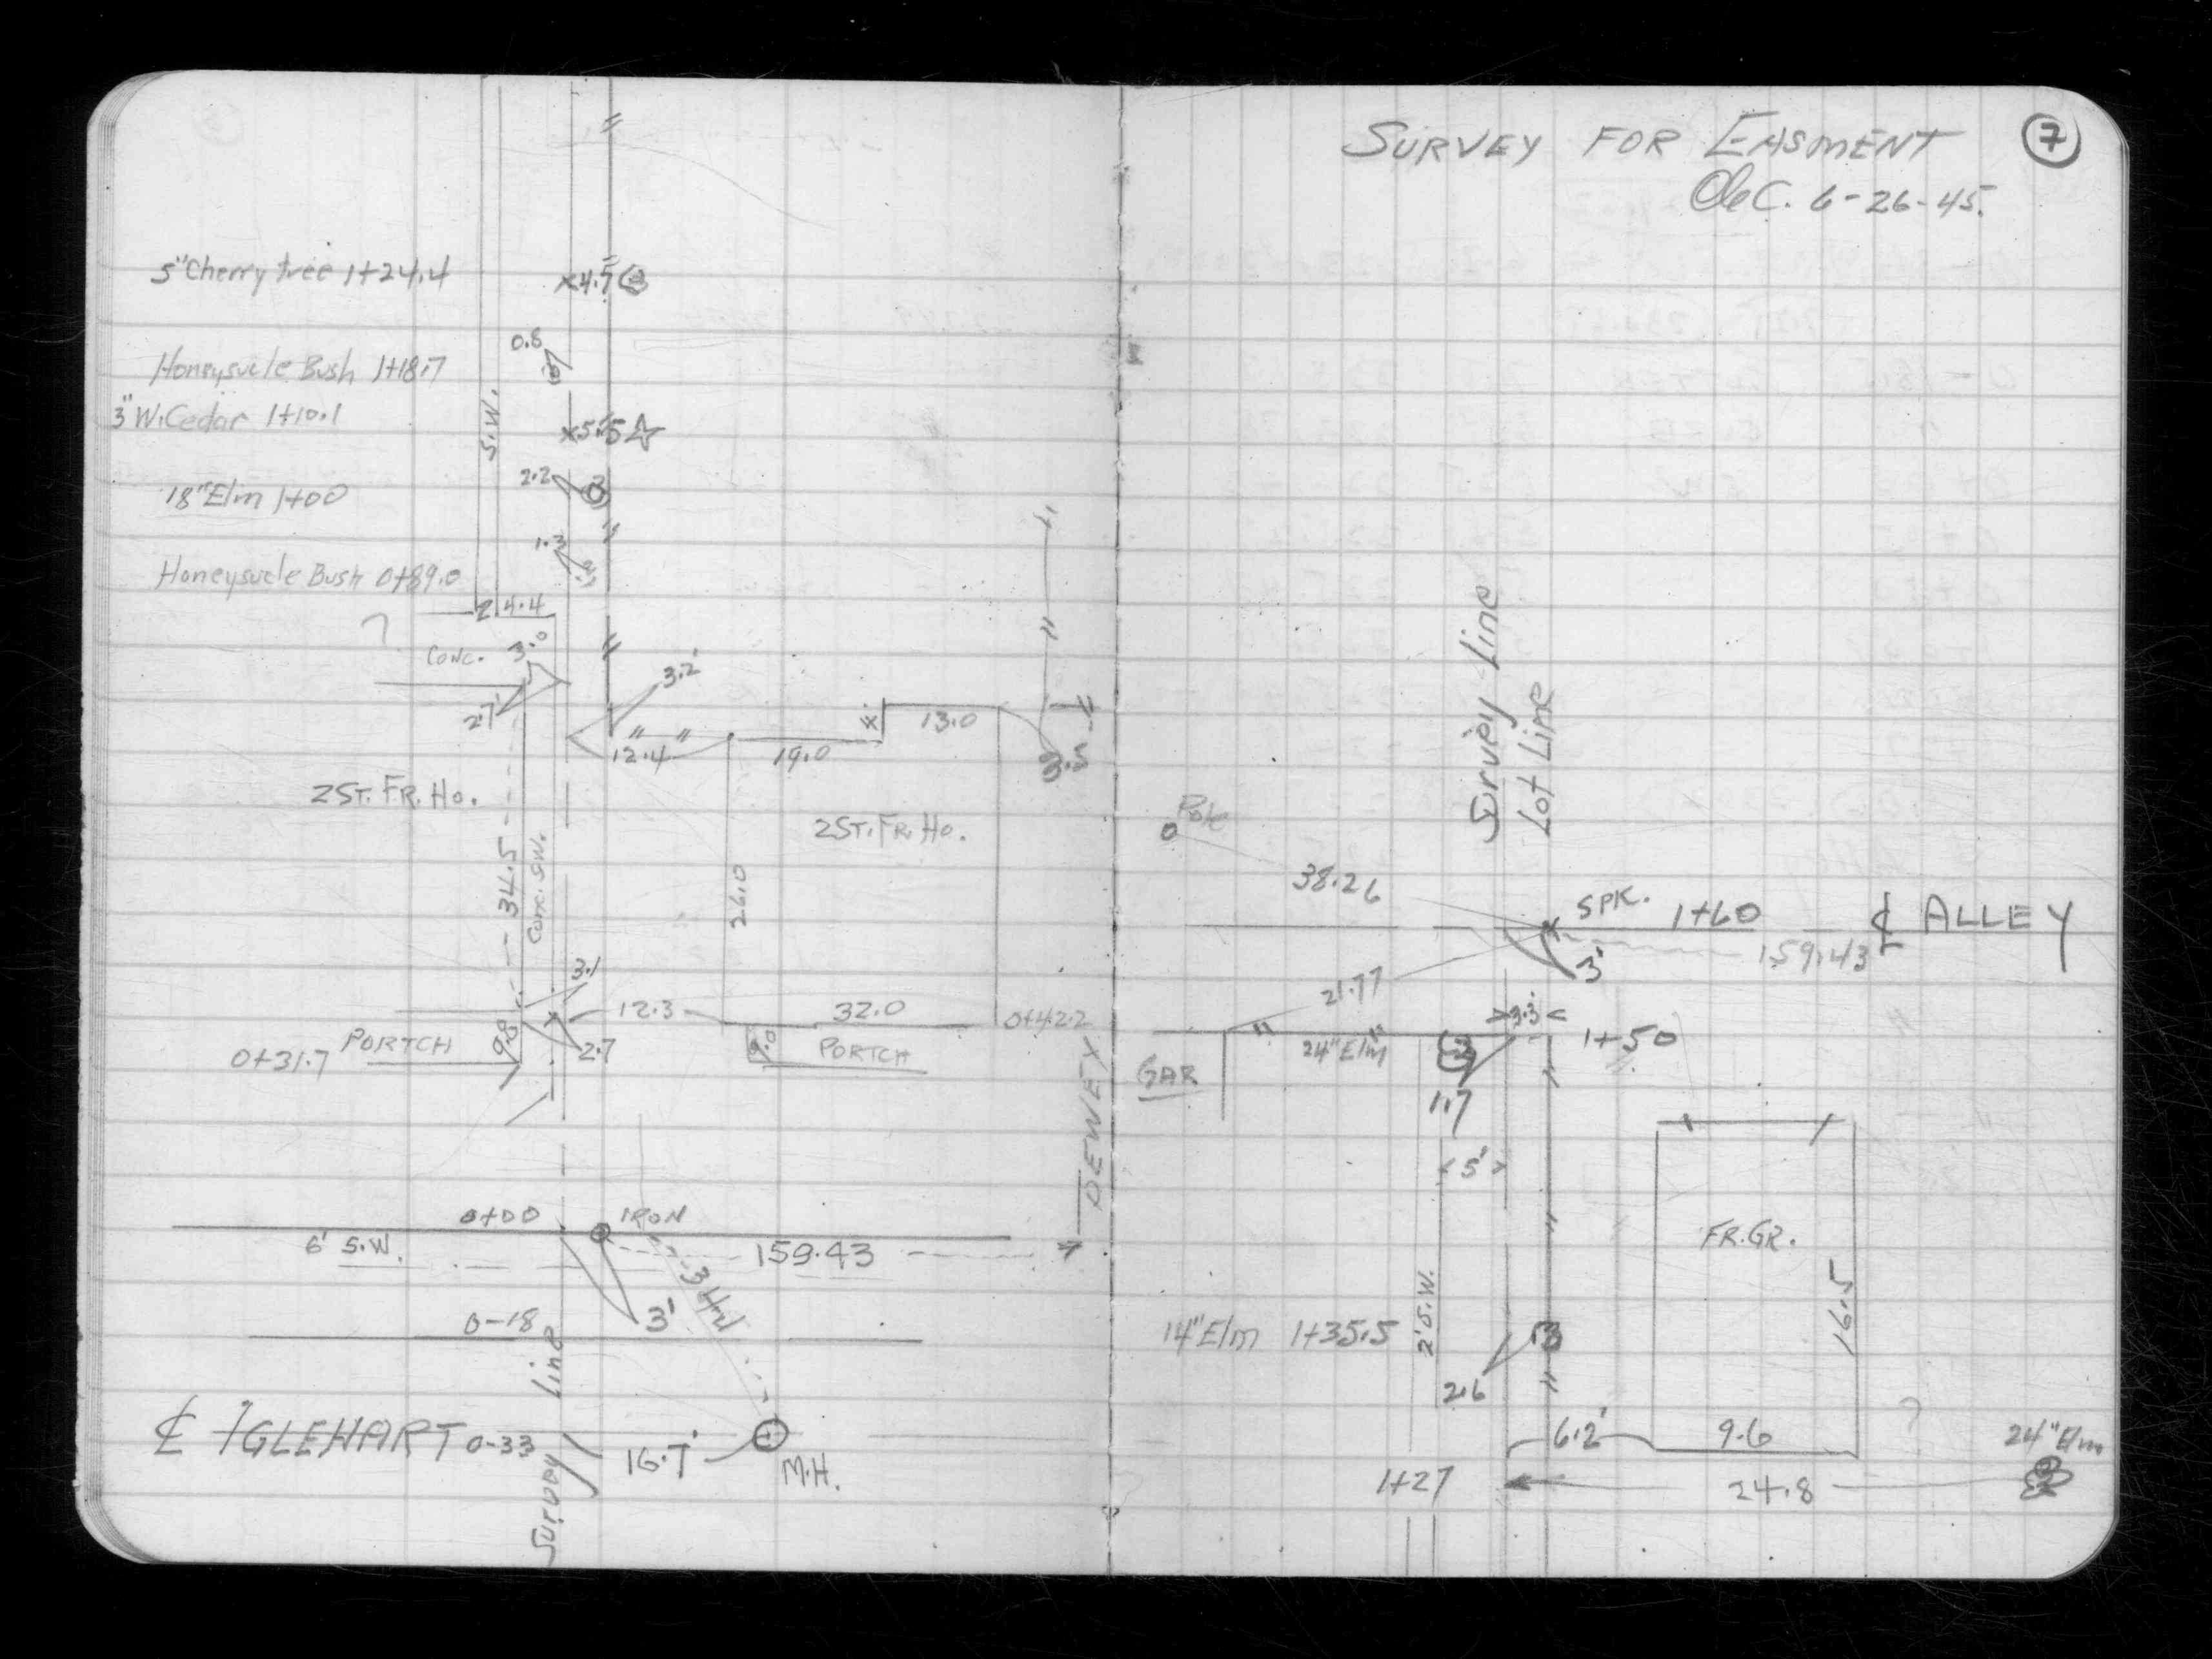 5" Cherry tree 1+24.4
x4.7
0.8
Honeysucle Bush 1+18.7
3" W. Cedar 1+10.1
S.W.
x5.5
2.2
18" Elm 1+00
1.3
Honeysucle Bush 0+89.0
2 4.4
?
CONC.
3.0
2.7
3.2'
12.4
19.0
13.0
3.5
2 ST. FR. HO.
2 ST. FR. HO.
34.5
CONC. SW.
26.0
3.1
12.3
32.0
0+42.2
0+31.7
PORTCH
9.8
2.7
9.0
PORTCH
DEWEY
0+00
IRON
6' S.W.
159.43
0-18
3'
Survey Line
℄ IGLEHART 0-33
16.7'
M.H.
SURVEY FOR EASMENT
7
6-26-45.
Survey Line
Lot Line
Pole
38.26
SPK.
1+60
℄ ALLEY
159.43
3'
21.77
3.3
24" Elm
1+50
GAR
1.7
5'
FR. GR.
2' S.W.
16.5
14" Elm 1+35.5
2.6
6.2'
9.6
?
24" Elm
1+27
24.8